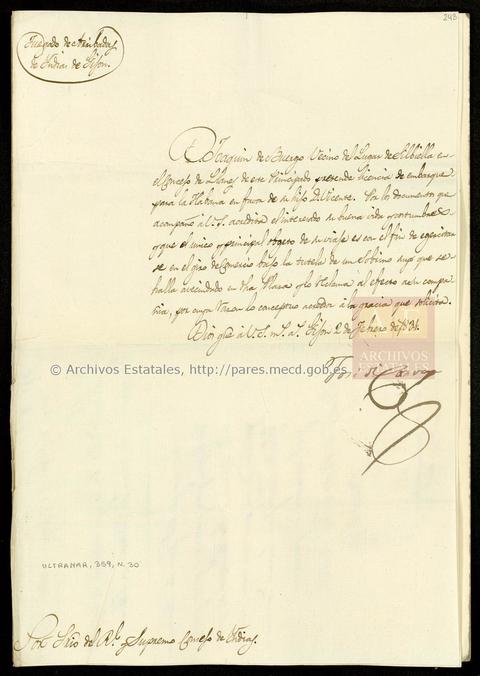 243
Juzgado de Arribadas
de Indias de Gijon.
D. Joaquin de Buergo Vecino del Lugar de en
el Concejo de Llanes de este Principado pretende licencia de embarque
para la Habana en favor de su hijo D. Vicente. Por los documentos que
acompaño á V.S. acredita el interesado su buena vida y costumbres
y que el unico y principal objeto de su viaje es con el fin de
se en el giro de Comercio bajo la tutela de un Sobrino suyo que se
halla avecindado en Plaza y lo reclama al efecto á su compa-
ñia, por cuya razon lo conceptuo acredor á la gracia que solicita.
Dios gue á V.S. m.s a.s Gijon 2 de Febrero de 1831.
ARCHIVOS
ESTATALES
© Archivos Estatales, http://pares.mecd.gob.es
ULTRAMAR, 359, N. 30
Sor. Srio del Rl. y Supremo Consejo de Indias.